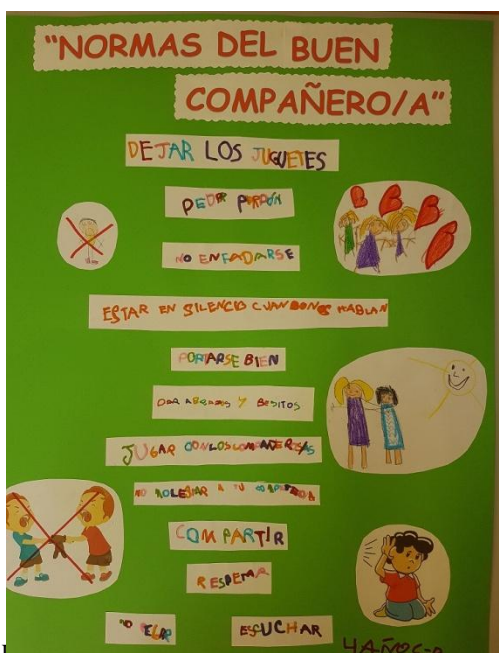 "NORMAS DEL BUEN
COMPAÑERO/A"
DEJAR LOS JUGUETES
PEDIR PERDÓN
NO ENFADARSE
ESTAR EN SILENCIO CUANDO NOS HABLAN
PORTARSE BIEN
DAR ABRAZOS Y BESITOS
JUGAR CON LOS COMPAÑEROS/AS
NO MOLESTAR A TU
COMPARTIR
RESPETAR
NO PEGAR
ESCUCHAR
4 AÑOS